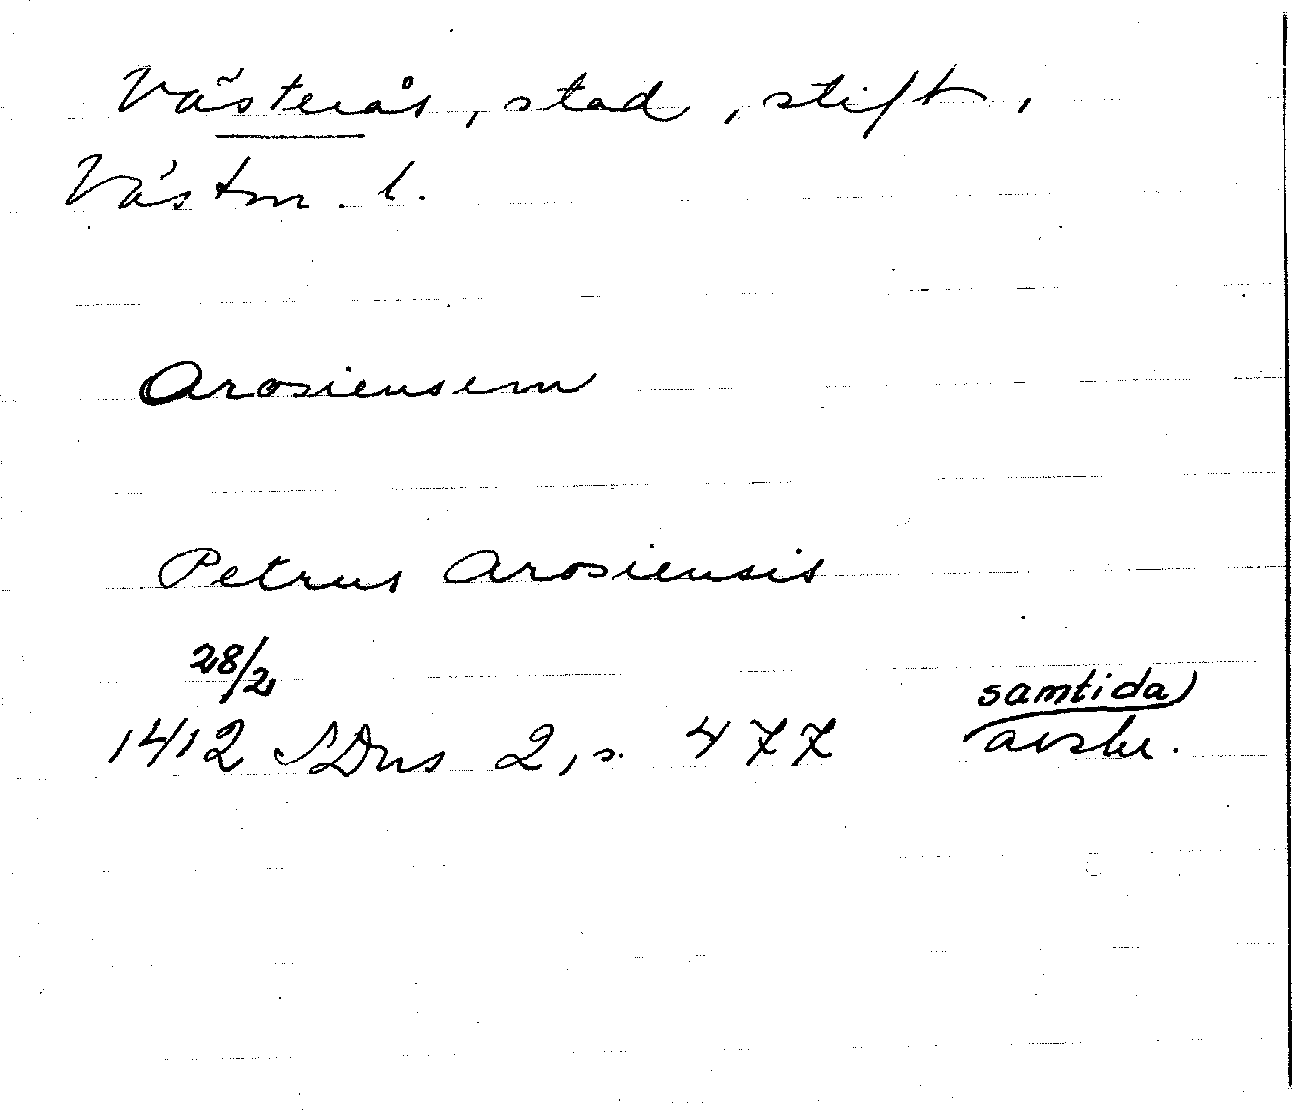 Västerås, stad, stift,
Västm. l.
Arosiensem
Petrus Arosiensis
28/2 samtida
1412 SDns 2, s. 477 avskr.